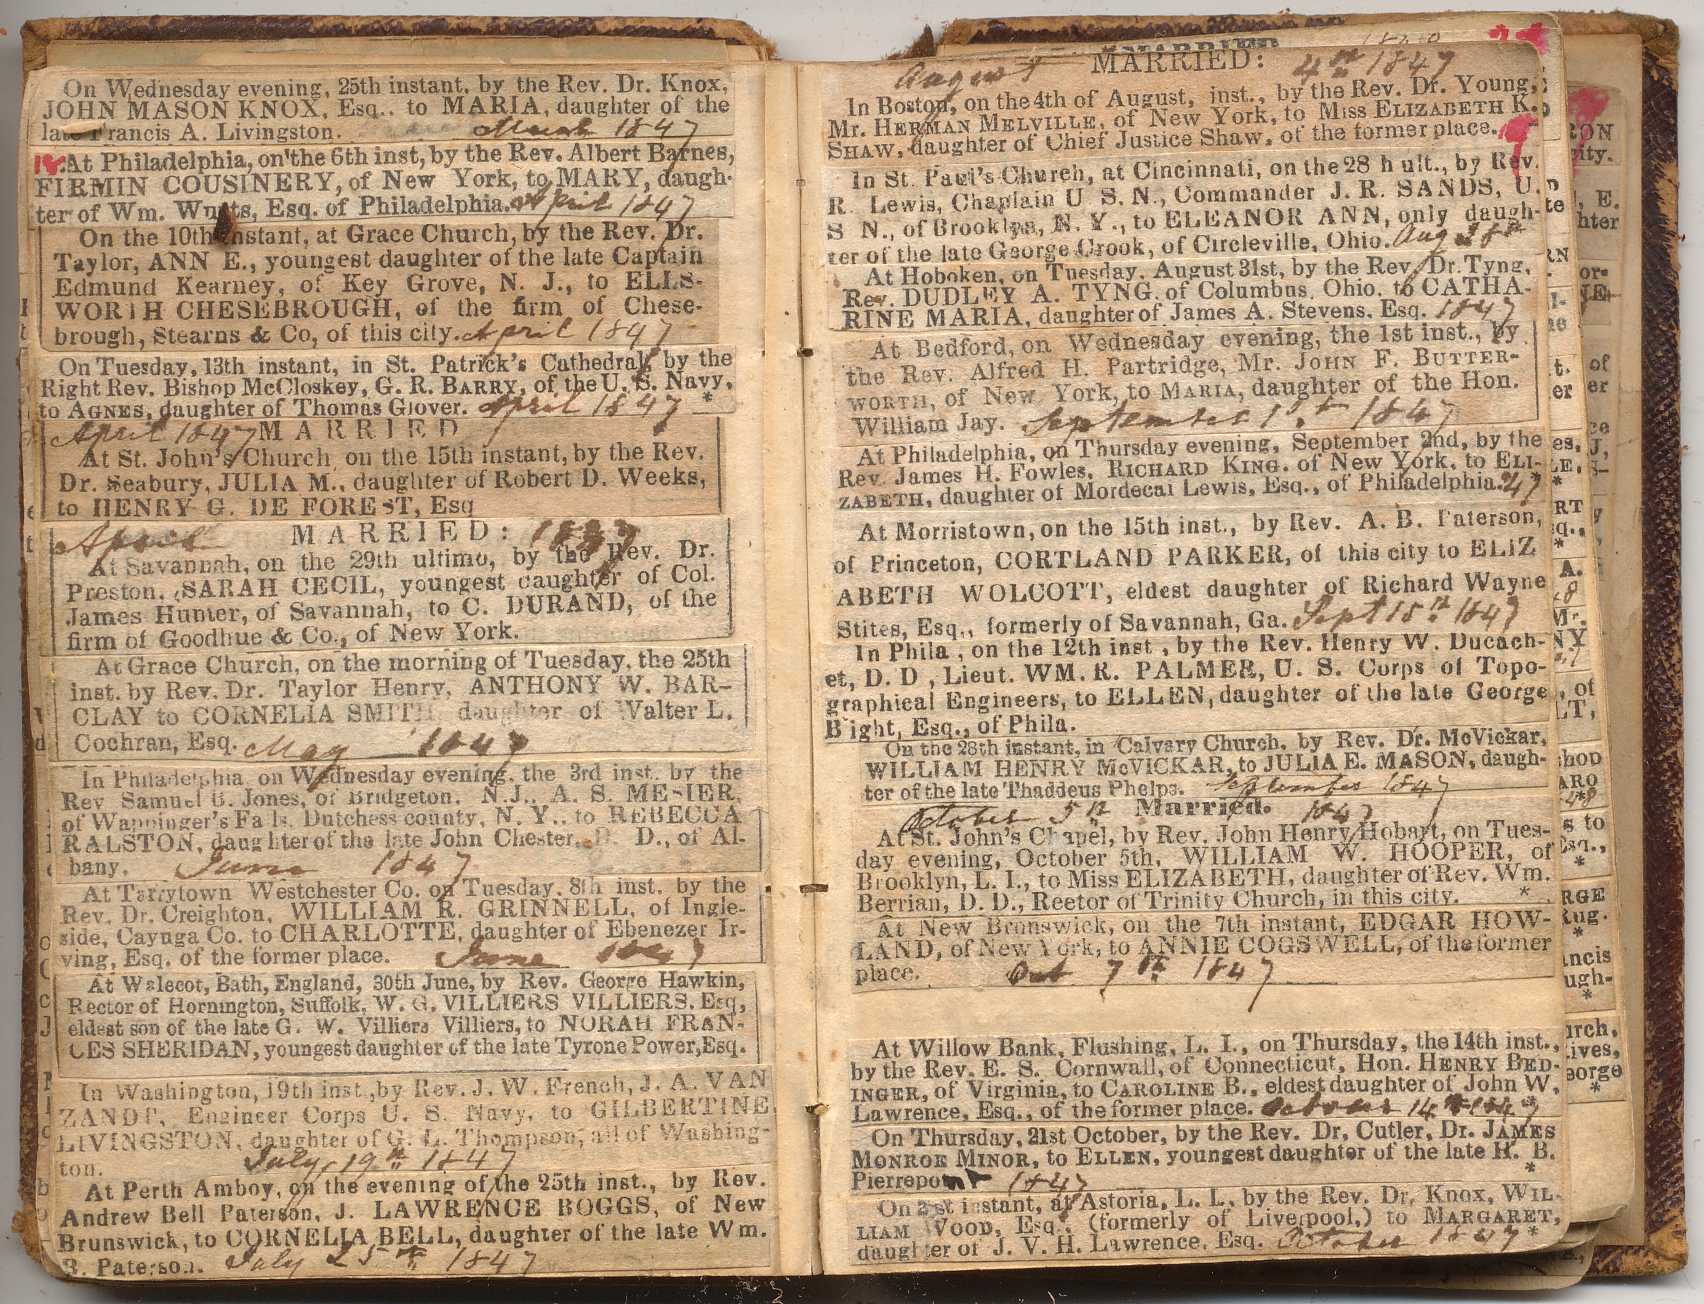 On Wednesday evening, 25th instant, by the Rev. Dr. Knox,
JOHN MASON KNOX, Esq., to MARIA, daughter of the
late Francis A. Livingston. March 1847
At Philadelphia, on the 6th inst, by the Rev. Albert Barnes,
FIRMIN COUSINERY, of New York, to MARY, daugh-
ter of Wm. Wurts, Esq. of Philadelphia. April 1847
On the 10th instant, at Grace Church, by the Rev. Dr.
Taylor, ANN E., youngest daughter of the late Captain
Edmund Kearney, of Key Grove, N. J., to ELLS-
WORTH CHESEBROUGH, of the firm of Chese-
brough, Stearns & Co, of this city. April 1847
On Tuesday, 13th instant, in St. Patrick's Cathedral, by the
Right Rev. Bishop McCloskey, G. R. BARRY, of the U. S. Navy,
to AGNES, daughter of Thomas Glover. April 1847 *
April 1847 MARRIED
At St. John's Church, on the 15th instant, by the Rev.
Dr. Seabury, JULIA M., daughter of Robert D. Weeks,
to HENRY G. DE FOREST, Esq
April MARRIED: 1847
At Savannah, on the 29th ultimo, by the Rev. Dr.
Preston, SARAH CECIL, youngest daughter of Col.
James Hunter, of Savannah, to C. DURAND, of the
firm of Goodhue & Co., of New York.
At Grace Church, on the morning of Tuesday, the 25th
inst. by Rev. Dr. Taylor Henry, ANTHONY W. BAR-
CLAY to CORNELIA SMITH, daughter of Walter L.
Cochran, Esq. May 1847
In Philadelphia on Wednesday evening, the 3rd inst. by the
Rev Samuel B. Jones, of Bridgeton, N.J., A. S. MESIER,
of Wappinger's Falls, Dutchess county, N. Y., to REBECCA
RALSTON, daughter of the late John Chester, D. D., of Al-
bany. June 1847
At Tarrytown Westchester Co. on Tuesday, 8th inst. by the
Rev. Dr. Creighton, WILLIAM R. GRINNELL, of Ingle-
side, Cayuga Co. to CHARLOTTE, daughter of Ebenezer Ir-
ving, Esq. of the former place. June 1847
At Walecot, Bath, England, 30th June, by Rev. George Hawkin,
Rector of Hornington, Suffolk, W. G. VILLIERS VILLIERS, Esq,
eldest son of the late G. W. Villiers Villiers, to NORAH FRAN-
CES SHERIDAN, youngest daughter of the late Tyrone Power, Esq.
In Washington, 19th inst., by Rev. J. W. French, J. A. VAN
ZANDT, Engineer Corps U. S. Navy, to GILBERTINE
LIVINGSTON, daughter of G. L. Thompson, all of Washing-
ton. July 19th 1847
At Perth Amboy, on the evening of the 25th inst., by Rev.
Andrew Bell Paterson, J. LAWRENCE BOGGS, of New
Brunswick, to CORNELIA BELL, daughter of the late Wm.
B. Paterson. July 25th 1847
August MARRIED: 4th 1847
In Boston, on the 4th of August, inst., by the Rev. Dr. Young,
Mr. HERMAN MELVILLE, of New York, to Miss ELIZABETH K.
SHAW, daughter of Chief Justice Shaw, of the former place.
In St. Paul's Church, at Cincinnati, on the 28 h ult., by Rev.
R. Lewis, Chaplain U S. N., Commander J. R. SANDS, U.
S N., of Brooklyn, N. Y., to ELEANOR ANN, only daugh-
ter of the late George Crook, of Circleville, Ohio. Aug 28th
At Hoboken, on Tuesday, August 31st, by the Rev. Dr. Tyng,
Rev. DUDLEY A. TYNG, of Columbus, Ohio, to CATHA-
RINE MARIA, daughter of James A. Stevens, Esq. 1847
At Bedford, on Wednesday evening, the 1st inst., by
the Rev. Alfred H. Partridge, Mr. JOHN F. BUTTER-
WORTH, of New York, to MARIA, daughter of the Hon.
William Jay. September 1st 1847
At Philadelphia, on Thursday evening, September 2nd, by the
Rev. James H. Fowles, RICHARD KING, of New York, to ELI-
ZABETH, daughter of Mordecai Lewis, Esq., of Philadelphia. 47
At Morristown, on the 15th inst., by Rev. A. B. Paterson,
of Princeton, CORTLAND PARKER, of this city to ELIZ
ABETH WOLCOTT, eldest daughter of Richard Wayne
Stites, Esq., formerly of Savannah, Ga. Sept 15th 1847
In Phila, on the 12th inst, by the Rev. Henry W. Ducach-
et, D. D, Lieut. WM. R. PALMER, U. S. Corps of Topo-
graphical Engineers, to ELLEN, daughter of the late George
B ight, Esq., of Phila.
On the 28th instant, in Calvary Church, by Rev. Dr. McVickar,
WILLIAM HENRY McVICKAR, to JULIA E. MASON, daugh-
ter of the late Thaddeus Phelps. September 1847
October 5th Married. 1847
At St. John's Chapel, by Rev. John Henry Hobart, on Tues-
day evening, October 5th, WILLIAM W. HOOPER, of
Brooklyn, L. I., to Miss ELIZABETH, daughter of Rev. Wm.
Berrian, D. D., Rector of Trinity Church, in this city. *
At New Brunswick, on the 7th instant, EDGAR HOW-
LAND, of New York, to ANNIE COGSWELL, of the former
place. Oct 7th 1847
At Willow Bank, Flushing, L. I., on Thursday, the 14th inst.,
by the Rev. E. S. Cornwall, of Connecticut, Hon. HENRY BED-
INGER, of Virginia, to CAROLINE B., eldest daughter of John W.
Lawrence, Esq., of the former place. October 14th 1847
On Thursday, 21st October, by the Rev. Dr, Cutler, Dr. JAMES
MONROE MINOR, to ELLEN, youngest daughter of the late H. B.
Pierrepont 1847 *
On 21st instant, at Astoria, L. I., by the Rev. Dr. Knox, WIL-
LIAM WOOD, Esq., (formerly of Liverpool,) to MARGARET,
daughter of J. V. H. Lawrence, Esq. October 1847 *